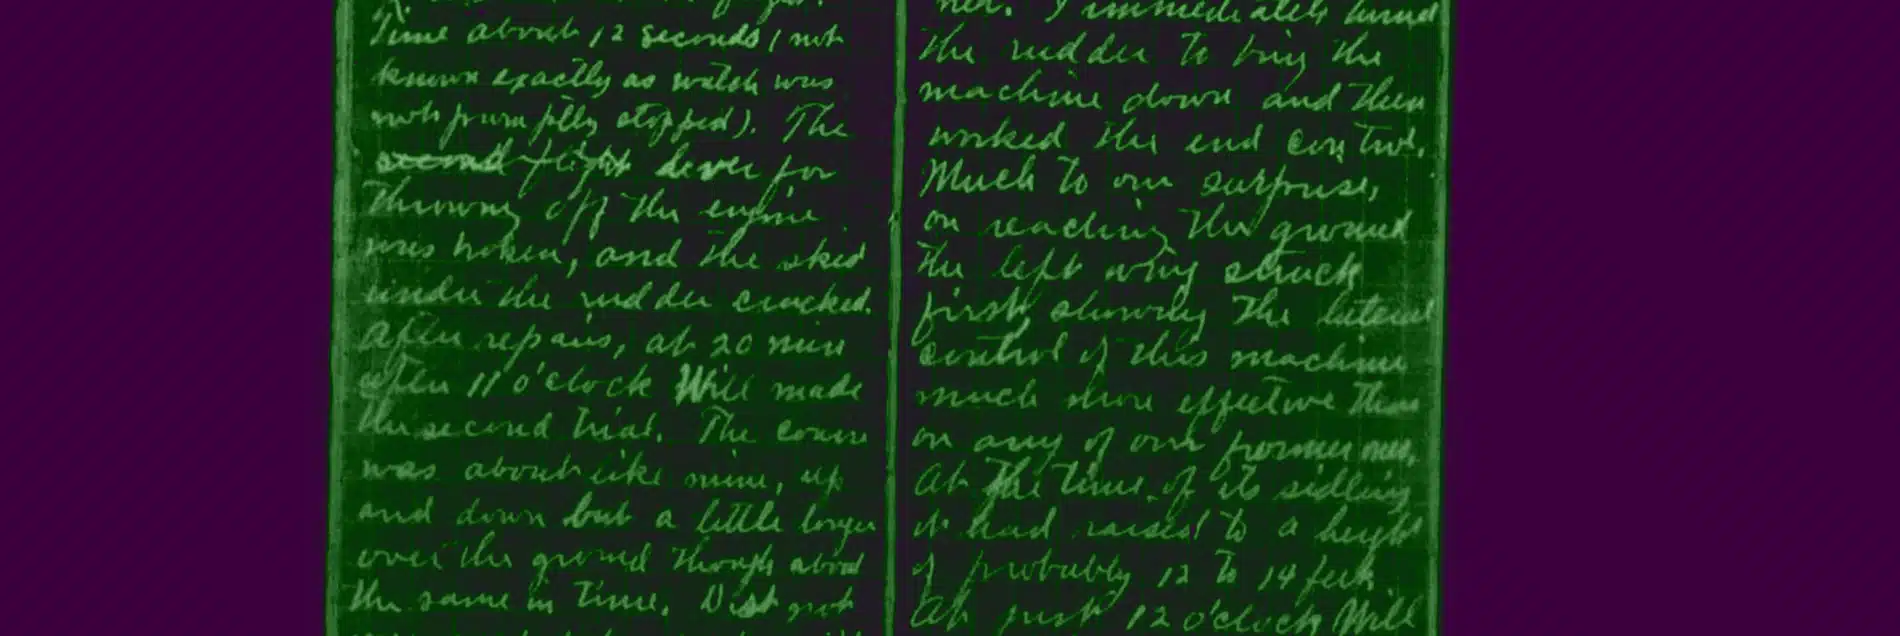 Time about 12 seconds (not
known exactly as watch was
not promptly stopped). The
second flight lever for
throwing off the engine
was broken, and the skid
under the rudder cracked.
After repairs, at 20 min
after 11 o'clock Will made
the second trial. The course
was about like mine, up
and down but a little longer
over the ground though about
the same in time. Dist not
her. I immediately turned
the rudder to bring the
machine down and then
worked the end control.
Much to our surprise,
on reaching the ground
the left wing struck
first, showing the lateral
control of this machine
much more effective than
on any of our former ones.
At the time of its sidling
it had raised to a height
of probably 12 to 14 feet.
At just 12 o'clock Will